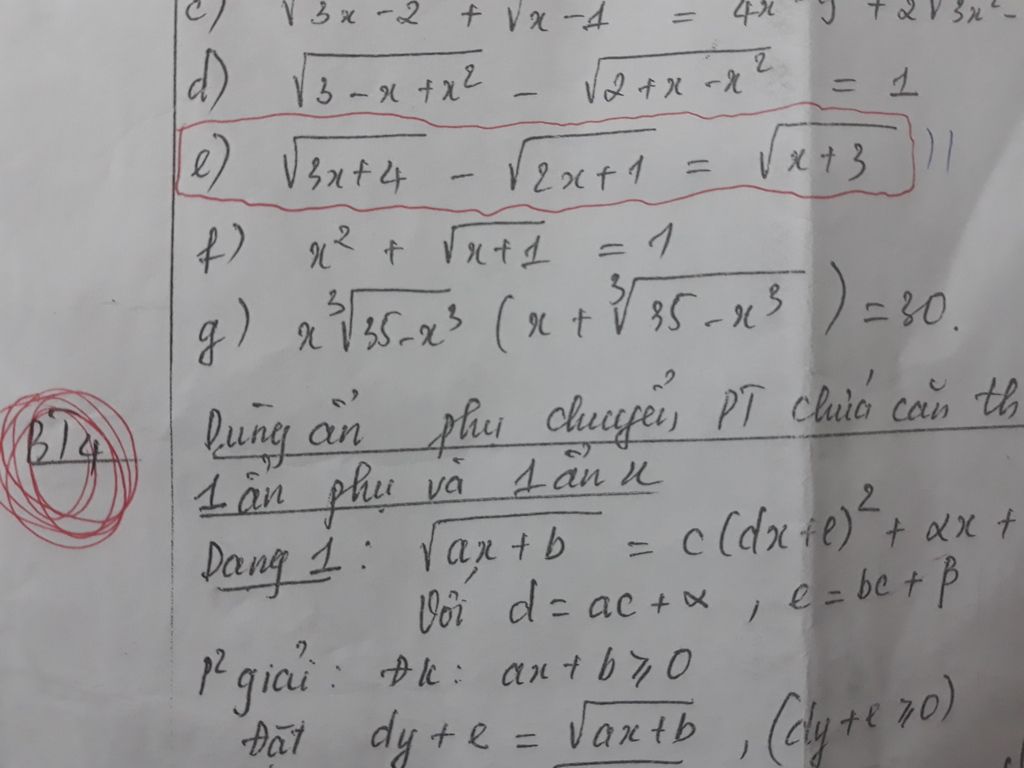 c) √3x-2 + √x-1 = 4x - 9 + 2√3x² -
d) √3-x+x² - √2+x-x² = 1
e) √3x+4 - √2x+1 = √x+3
f) x² + √x+1 = 1
g) x ³√35-x³ (x + ³√35-x³) = 30.
BT4
Dùng ẩn phụ chuyển PT chứa căn th
1 ẩn phụ và 1 ẩn x
Dạng 1: √ax+b = c(dx+e)² + αx +
Với d = ac + α, e = bc + β
P² giải: Đk: ax+b ≥ 0
Đặt dy+e = √ax+b, (dy+e ≥ 0)